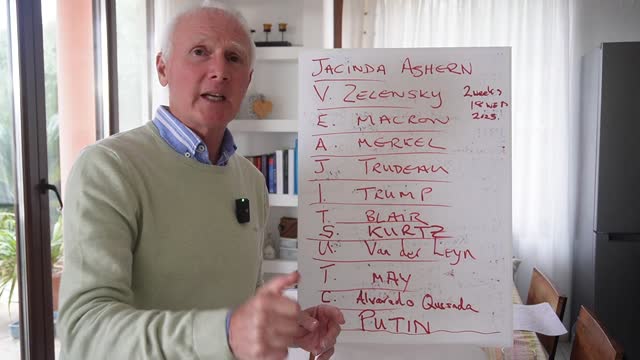 JACINDA ASHERN
V. ZELENSKY
2 weeks
18 WED
2023.
E. MACRON
A. MERKEL
J. TRUDEAU
I. TRUMP
T. BLAIR
S. KURTZ
U. Van der Leyn
T. MAY
C. Alvarado Quesada
PUTIN